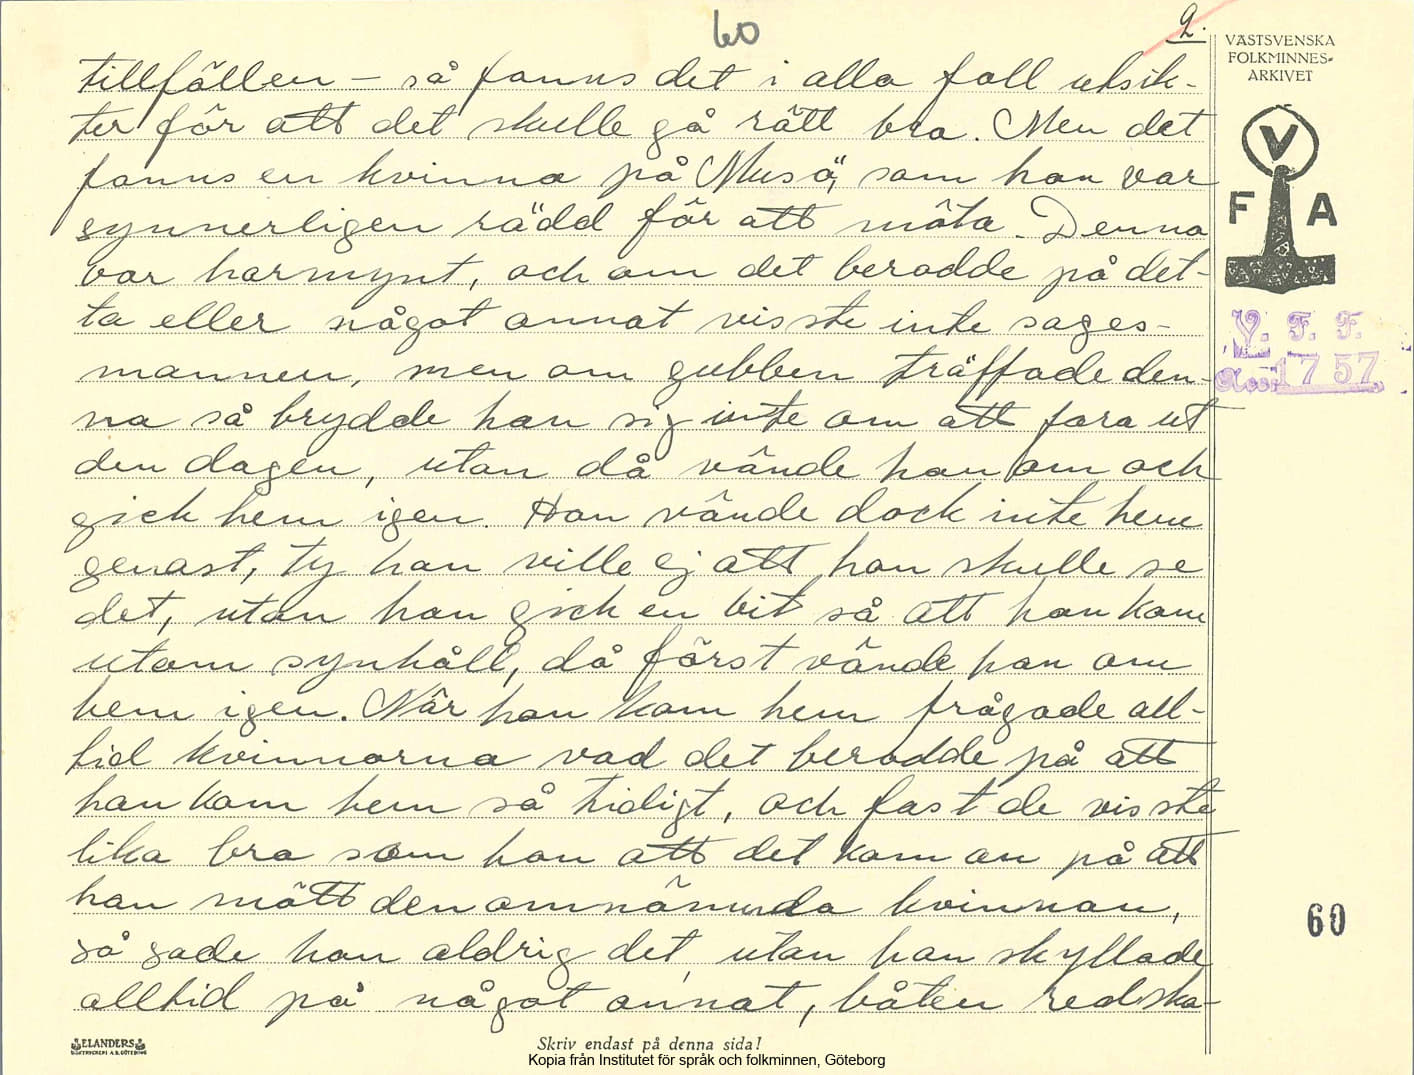 60
2.
VÄSTSVENSKA
FOLKMINNES-
ARKIVET
V
F A
V. F. F.
Acc. 1757
tillfällen – så fanns det i alla fall utsik-
ter för att det skulle gå rätt bra. Men det
fanns en kvinna på Musö, som han var
synnerligen rädd för att möta. Denna
var harmynt, och om det berodde på det-
ta eller något annat visste inte sages-
mannen, men om gubben träffade den-
na så brydde han sig inte om att fara ut
den dagen, utan då vände han om och
gick hem igen. Han vände dock inte hem
genast, ty han ville ej att hon skulle se
det, utan han gick en bit så att han kom
utom synhåll, då först vände han om
hem igen. När han kom hem frågade all-
tid kvinnorna vad det berodde på att
han kom hem så tidigt, och fast de visste
lika bra som han att det kom an på att
han mött den omnämnda kvinnan,
så sade han aldrig det, utan han skyllade
alltid på något annat, båten redska-
60
ELANDERS
BOKTRYCKERI A.B. GÖTEBORG
Skriv endast på denna sida!
Kopia från Institutet för språk och folkminnen, Göteborg